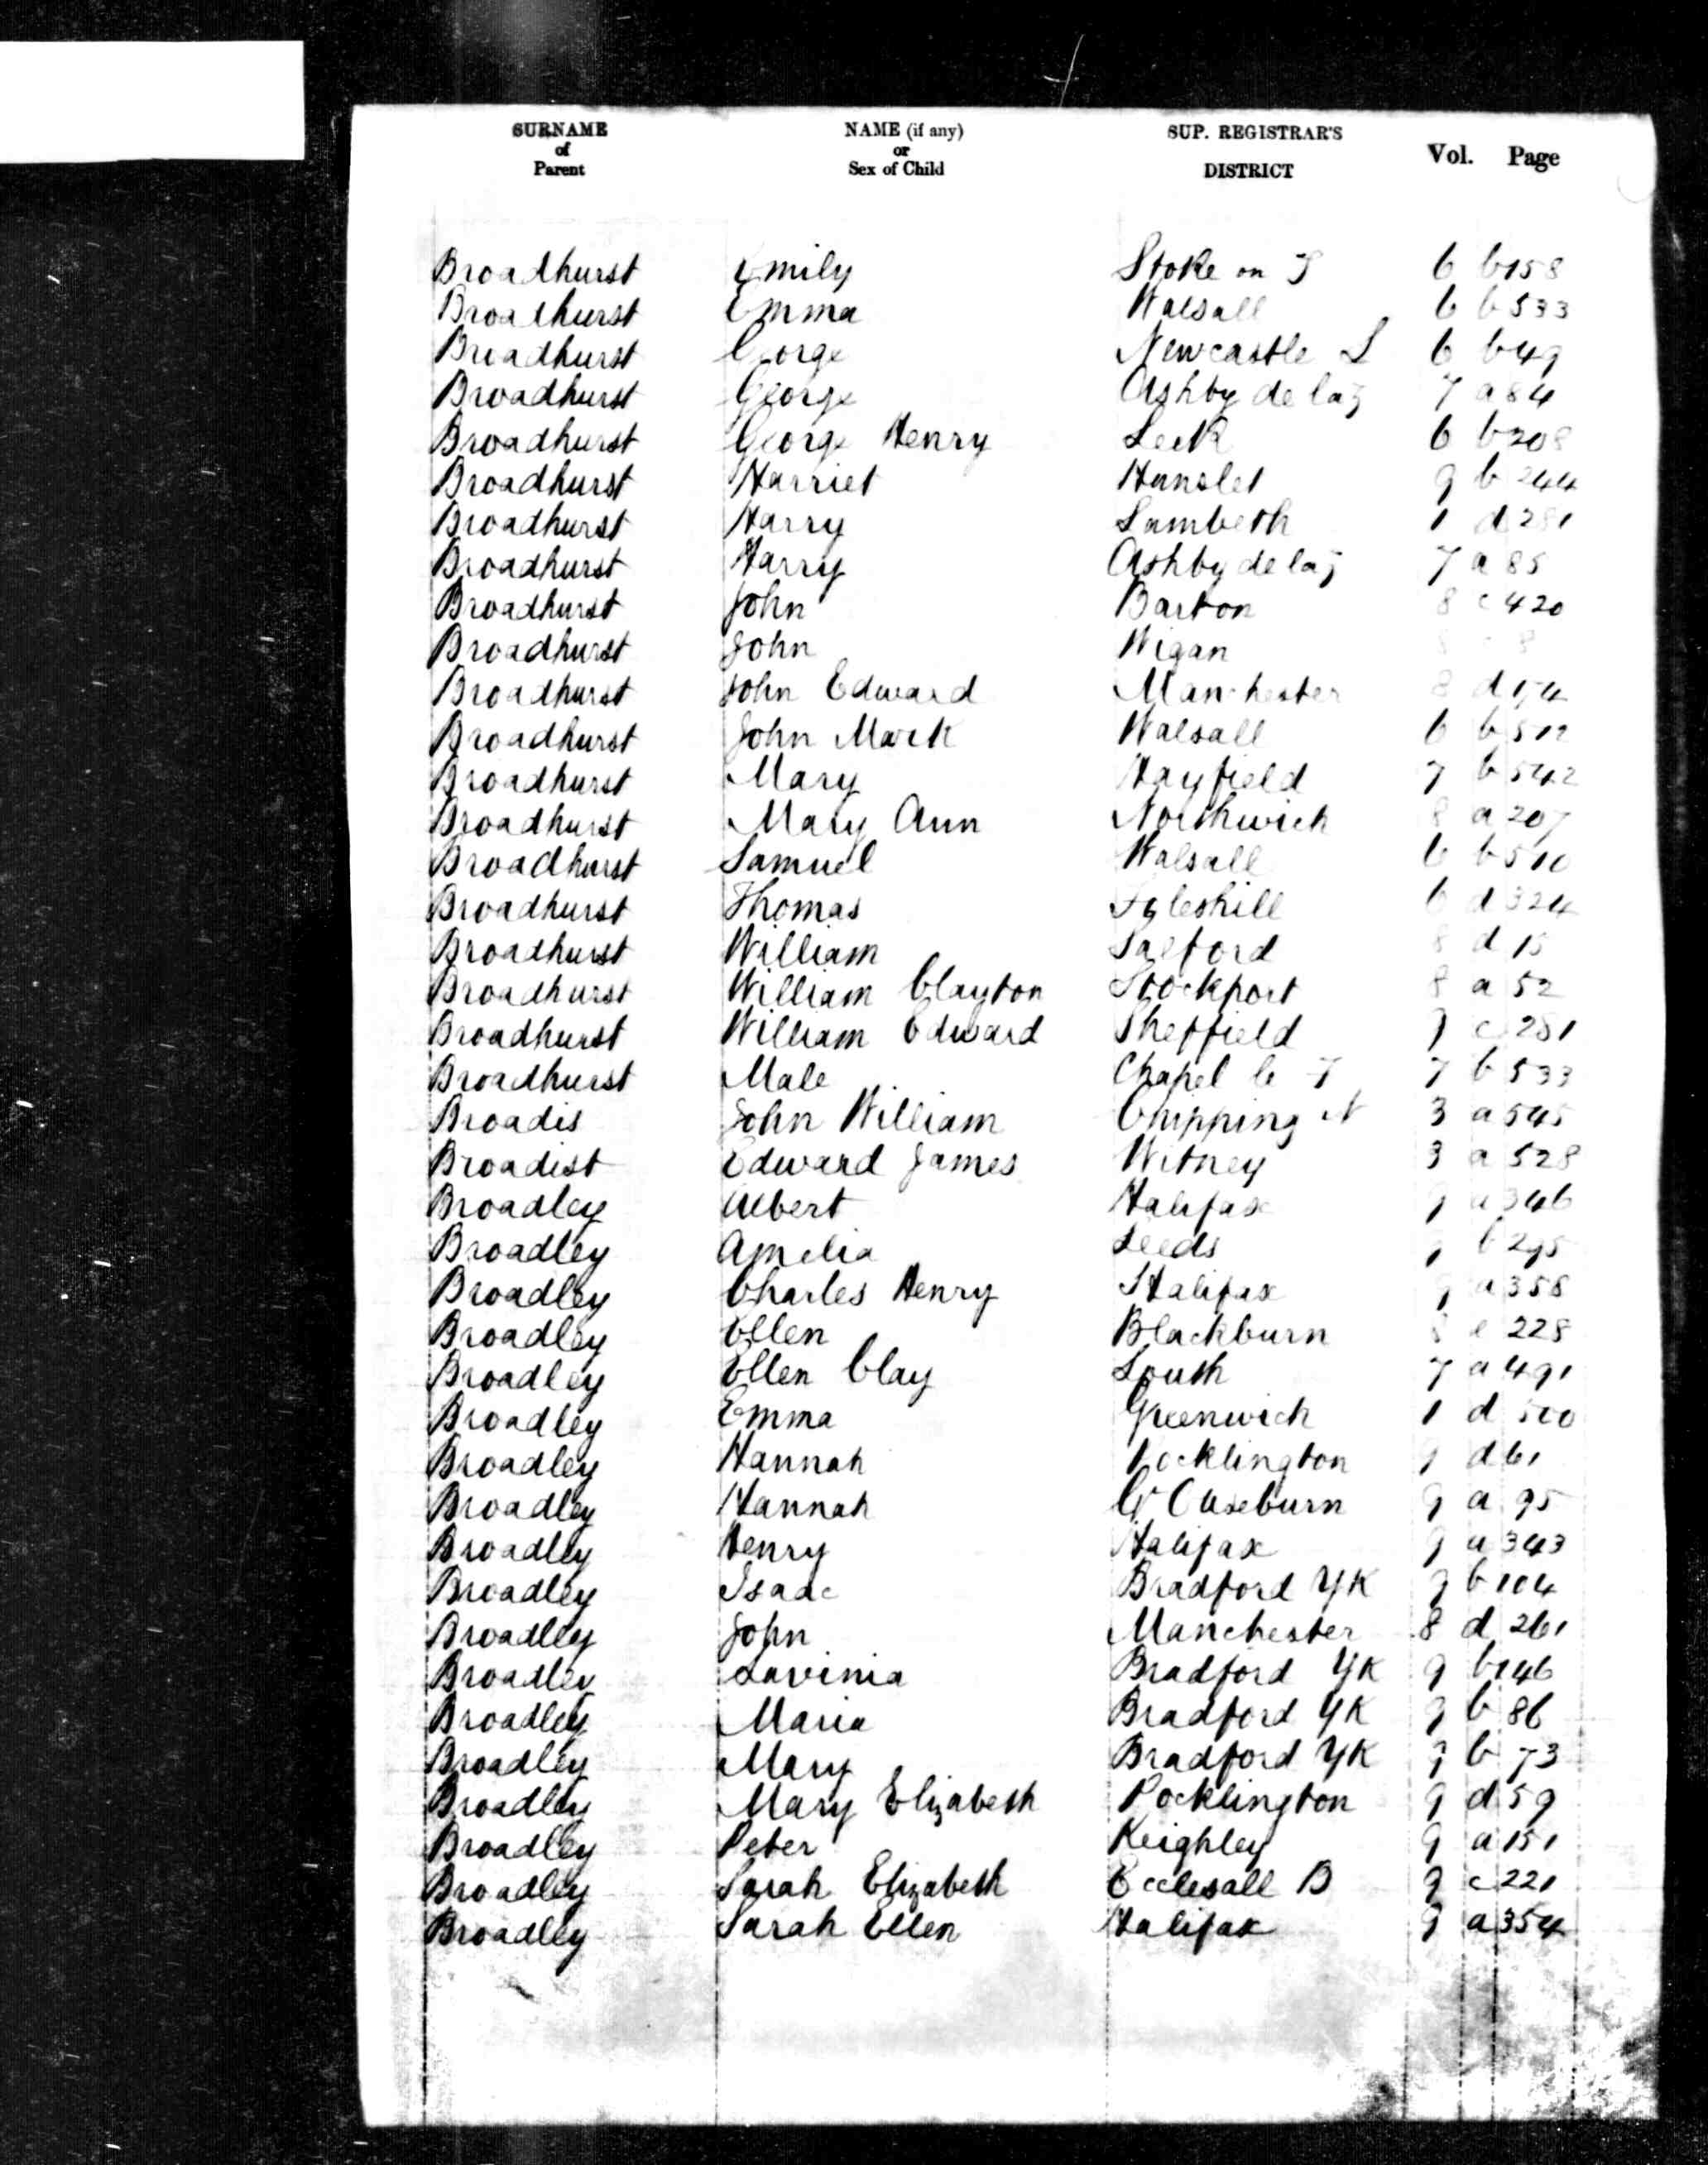 SURNAME of Parent NAME (if any) or Sex of Child SUP. REGISTRAR'S DISTRICT Vol. Page
Broadhurst Emily Stoke on T 6 b 158
Broadhurst Emma Walsall 6 b 533
Broadhurst George Newcastle L 6 b 49
Broadhurst George Ashby de la Z 7 a 84
Broadhurst George Henry Leek 6 b 208
Broadhurst Harriet Hunslet 9 b 244
Broadhurst Harry Lambeth 1 d 281
Broadhurst Harry Ashby de la Z 7 a 85
Broadhurst John Barton 8 c 420
Broadhurst John Wigan 8
Broadhurst John Edward Manchester 8 d
Broadhurst John Mark Walsall 6 b
Broadhurst Mary Hayfield 7 b 542
Broadhurst Mary Ann Northwich 8 a 207
Broadhurst Samuel Walsall 6 b 510
Broadhurst Thomas Foleshill 6 d 324
Broadhurst William Salford 8 d 15
Broadhurst William Clayton Stockport 8 a 52
Broadhurst William Edward Sheffield 9 c 281
Broadhurst Male Chapel le F 7 b 533
Broadis John William Chipping N 3 a 545
Broadist Edward James Witney 3 a 528
Broadley Albert Halifax 9 a 346
Broadley Amelia Leeds 9 b 295
Broadley Charles Henry Halifax 9 a 358
Broadley Ellen Blackburn 8 e 228
Broadley Ellen Clay Louth 7 a 491
Broadley Emma Greenwich 1 d 500
Broadley Hannah Pocklington 9 d 61
Broadley Hannah Gt Ouseburn 9 a 95
Broadley Henry Halifax 9 a 343
Broadley Isaac Bradford YK 9 b 104
Broadley John Manchester 8 d 261
Broadley Lavinia Bradford YK 9 b 146
Broadley Maria Bradford YK 9 b 86
Broadley Mary Bradford YK 9 b 73
Broadley Mary Elizabeth Pocklington 9 d 59
Broadley Peter Keighley 9 a 151
Broadley Sarah Elizabeth Ecclesall B 9 c 221
Broadley Sarah Ellen Halifax 9 a 354